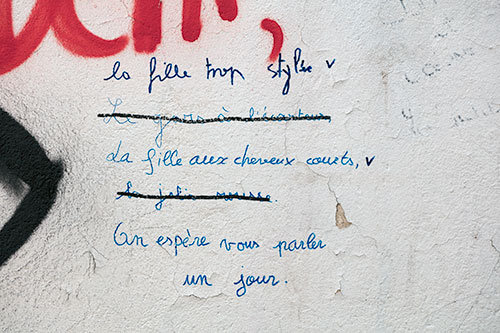 la fille trop stylée v
Le gars à l'écarteur
La fille aux cheveux courts, v
la jolie rousse.
On espère vous parler
un jour.